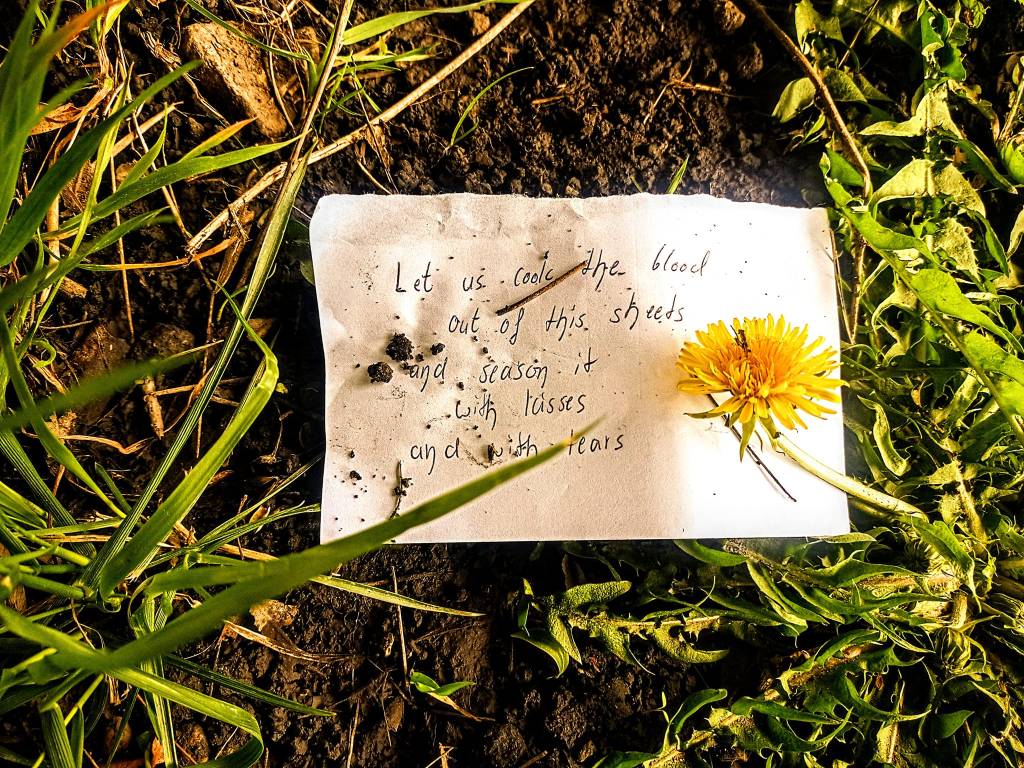 Let us cook the blood
out of this sheets
and season it
with kisses
and with tears